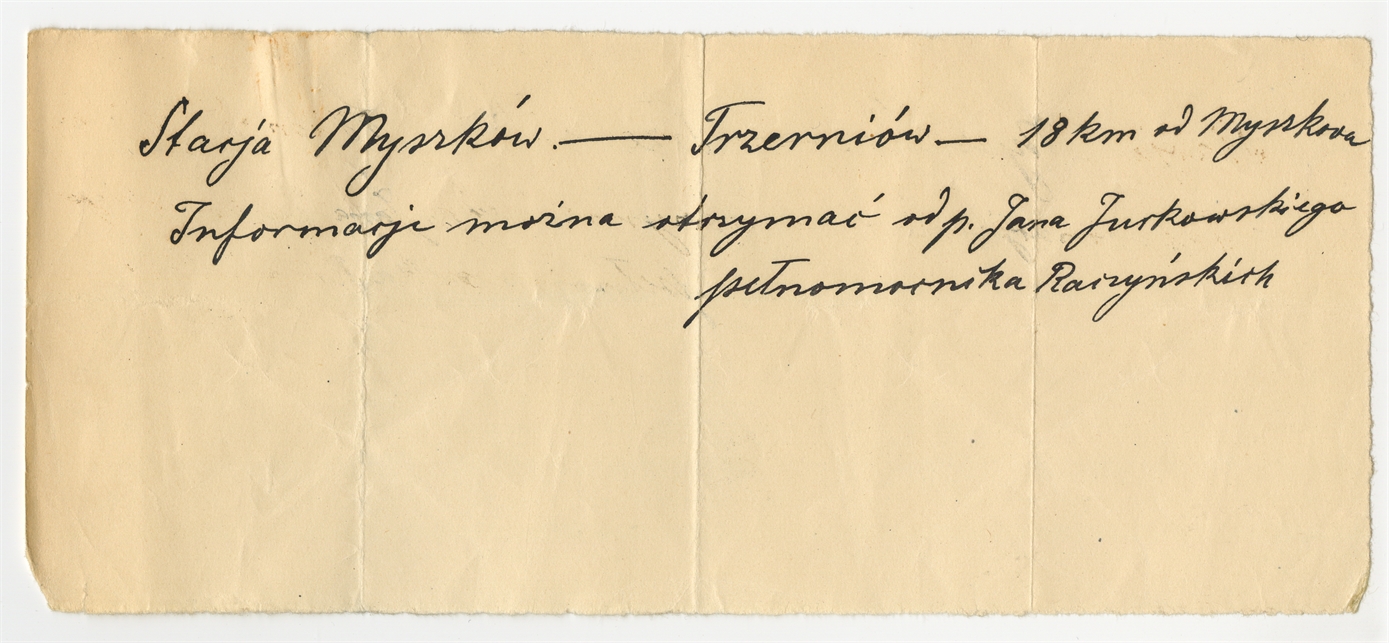 Stacja Myszków. — Trzerniów — 18 km od Myszkowa
Informacje można otrzymać od p. Jana Jurkowskiego
pełnomocnika Raczyńskich